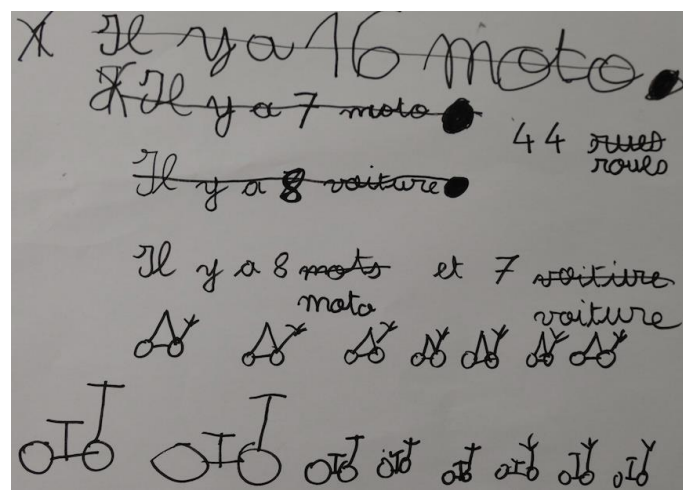 X Il y a 16 moto.
X Il y a 7 moto.
44 rues
roues
Il y a 8 voiture.
Il y a 8 mots et 7 voitiure
moto voiture